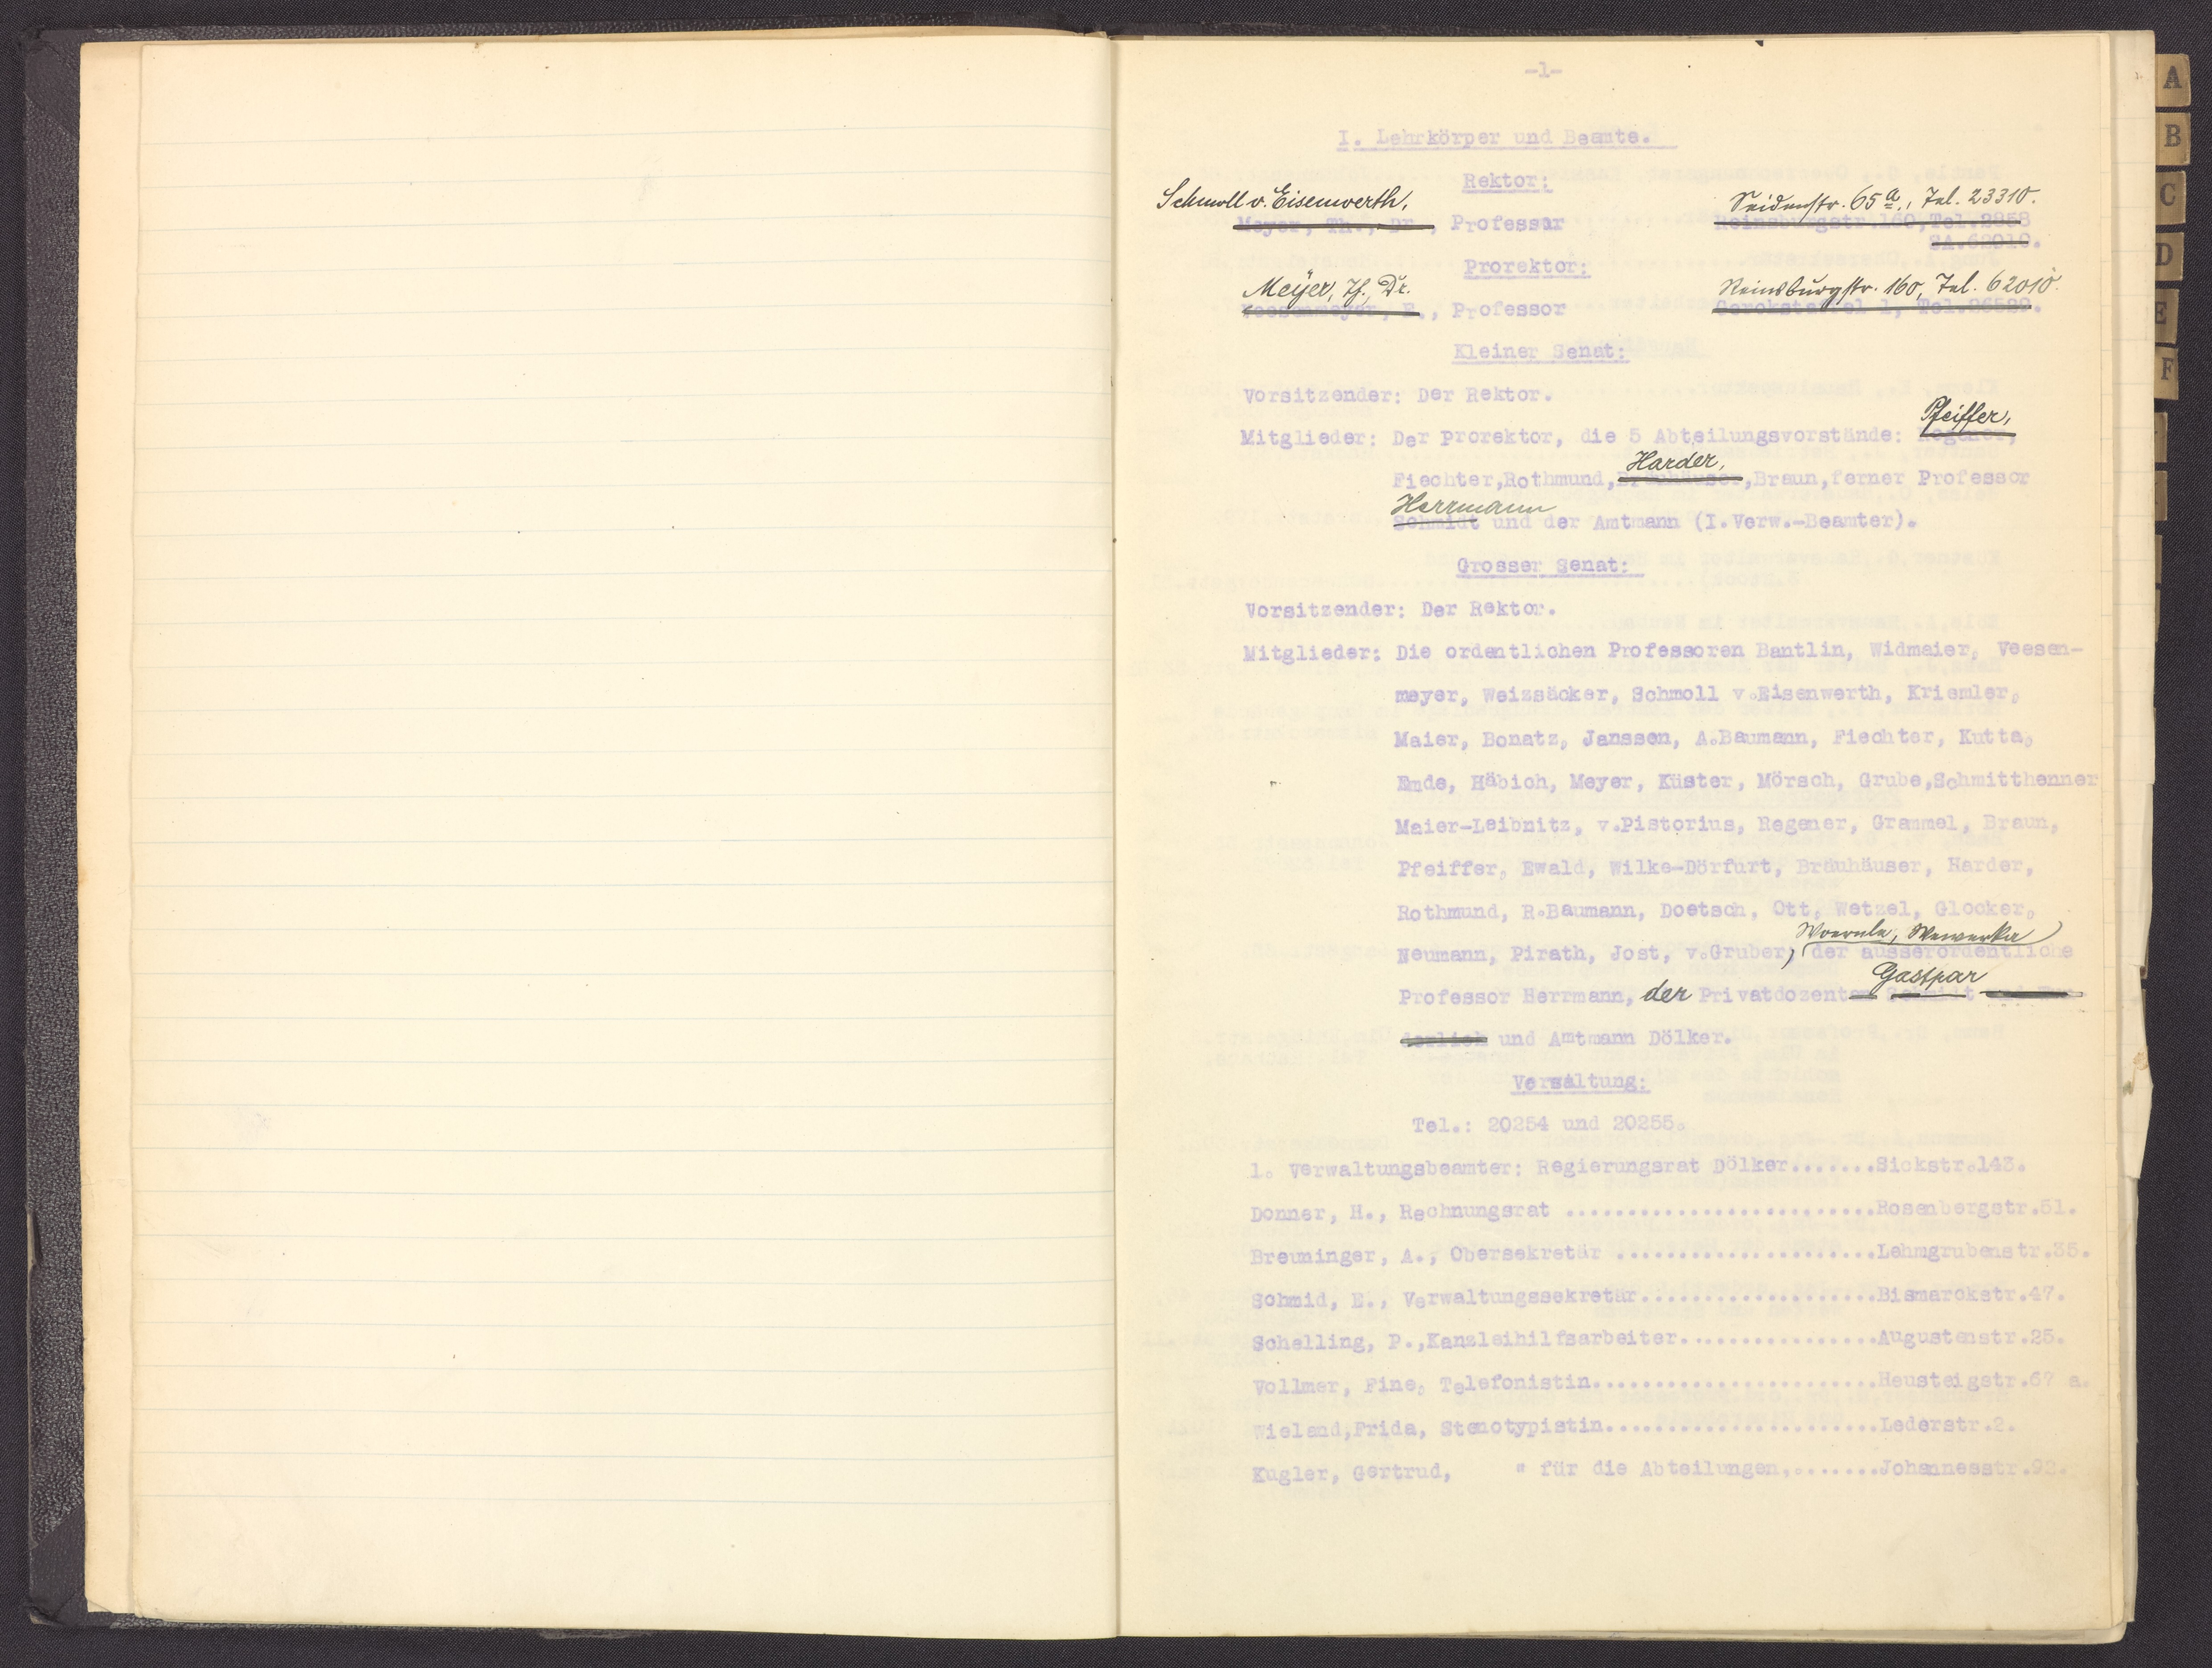 -1-
I. Lehrkörper und Beamte.
Rektor:
Schmoll v. Eisenwerth, Seidenstr. 65a, Tel. 23310.
Meyer, Th., Dr., Professor Reinsburgstr.160, Tel.2858
SA.62010.
Prorektor:
Meyer, Th., Dr. Reinsburgstr. 160, Tel. 62010.
Veesenmeyer, E., Professor Gerokstaffel 1, Tel.26520.
Kleiner Senat:
Vorsitzender: Der Rektor.
Pfeiffer,
Mitglieder: Der Prorektor, die 5 Abteilungsvorstände: Regener,
Harder,
Fiechter,Rothmund,Bräuhäuser,Braun,ferner Professor
Herrmann
Schmidt und der Amtmann (I.Verw.-Beamter).
Grosser Senat:
Vorsitzender: Der Rektor.
Mitglieder: Die ordentlichen Professoren Bantlin, Widmaier, Veesen-
meyer, Weizsäcker, Schmoll v.Eisenwerth, Kriemler,
Maier, Bonatz, Janssen, A.Baumann, Fiechter, Kutta,
Emde, Häbich, Meyer, Küster, Mörsch, Grube,Schmitthenner
Maier-Leibnitz, v.Pistorius, Regener, Grammel, Braun,
Pfeiffer, Ewald, Wilke-Dörfurt, Bräuhäuser, Harder,
Rothmund, R.Baumann, Doetsch, Ott, Wetzel, Glocker,
Woernle, Wewerka
Neumann, Pirath, Jost, v.Gruber, der ausserordentliche
Gastpar
Professor Herrmann, der Privatdozenten Schmidt und
derlich und Amtmann Dölker.
Verwaltung:
Tel.: 20254 und 20255.
1. Verwaltungsbeamter: Regierungsrat Dölker.......Sickstr.143.
Donner, H., Rechnungsrat .........................Rosenbergstr.51.
Breuninger, A., Obersekretär .....................Lehmgrubenstr.35.
Schmid, E., Verwaltungssekretär...................Bismarckstr.47.
Schelling, P.,Kanzleihilfsarbeiter................Augustenstr.25.
Vollmer, Fine, Telefonistin.......................Heusteigstr.67 a.
Wieland,Frida, Stenotypistin......................Lederstr.2.
Kugler, Gertrud, " für die Abteilungen,.......Johannesstr.92.
A
B
C
D
E
F